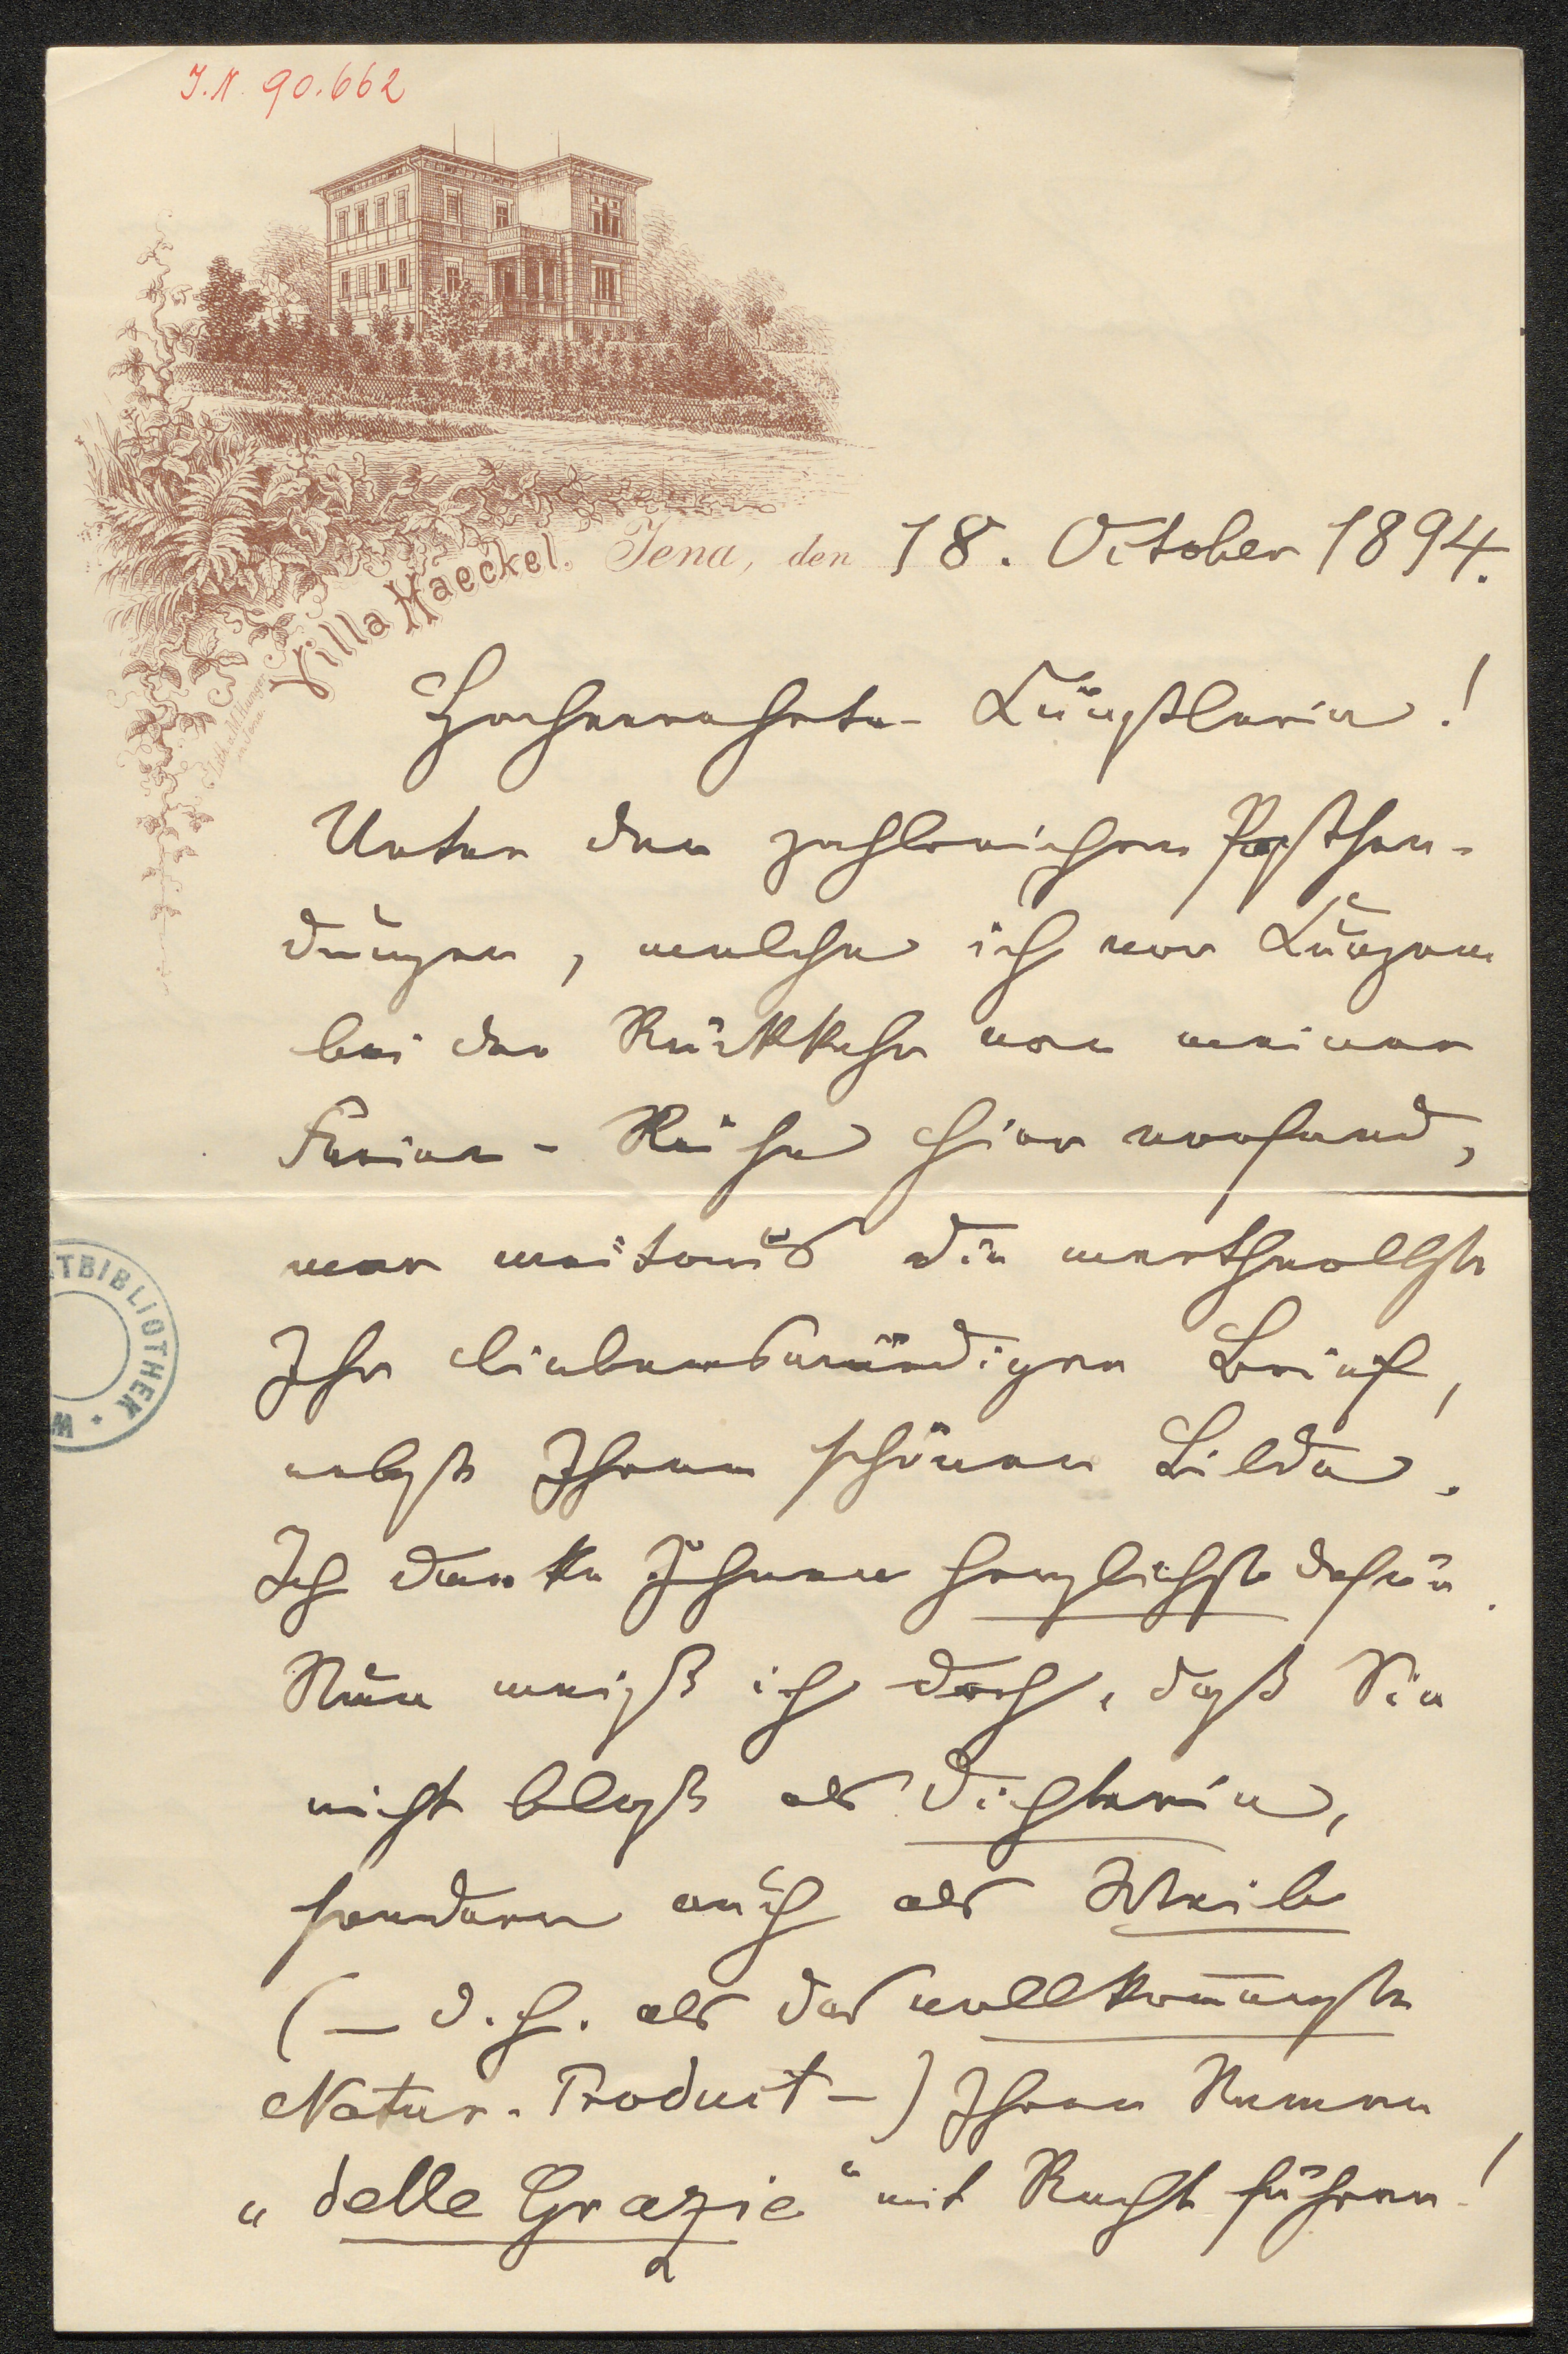 J.N. 90.662
Villa Haeckel. Jena, den 18. October 1894.
Lith. v. Giltsch
in Jena
Hochverehrte Künstlerin!
Unter den zahlreichen Postsen-
dungen, welche ich vor Kurzem
bei der Rückkehr von meiner
Ferien-Reise hier vorfand,
war weitaus die werthvollste
Ihr liebenswürdigen Brief,
nebst Ihrem schönen Bilde.
Ich danke Ihnen herzlichst dafür.
Nun weiß ich doch, daß Sie
nicht bloß als Dichterin,
sondern auch als Weib
(– d. h. als das vollkom̅enste
Natur-Product –) Ihren Namen
„delle Grazie“ mit Recht führen!
TBIBLIOTHEK • W